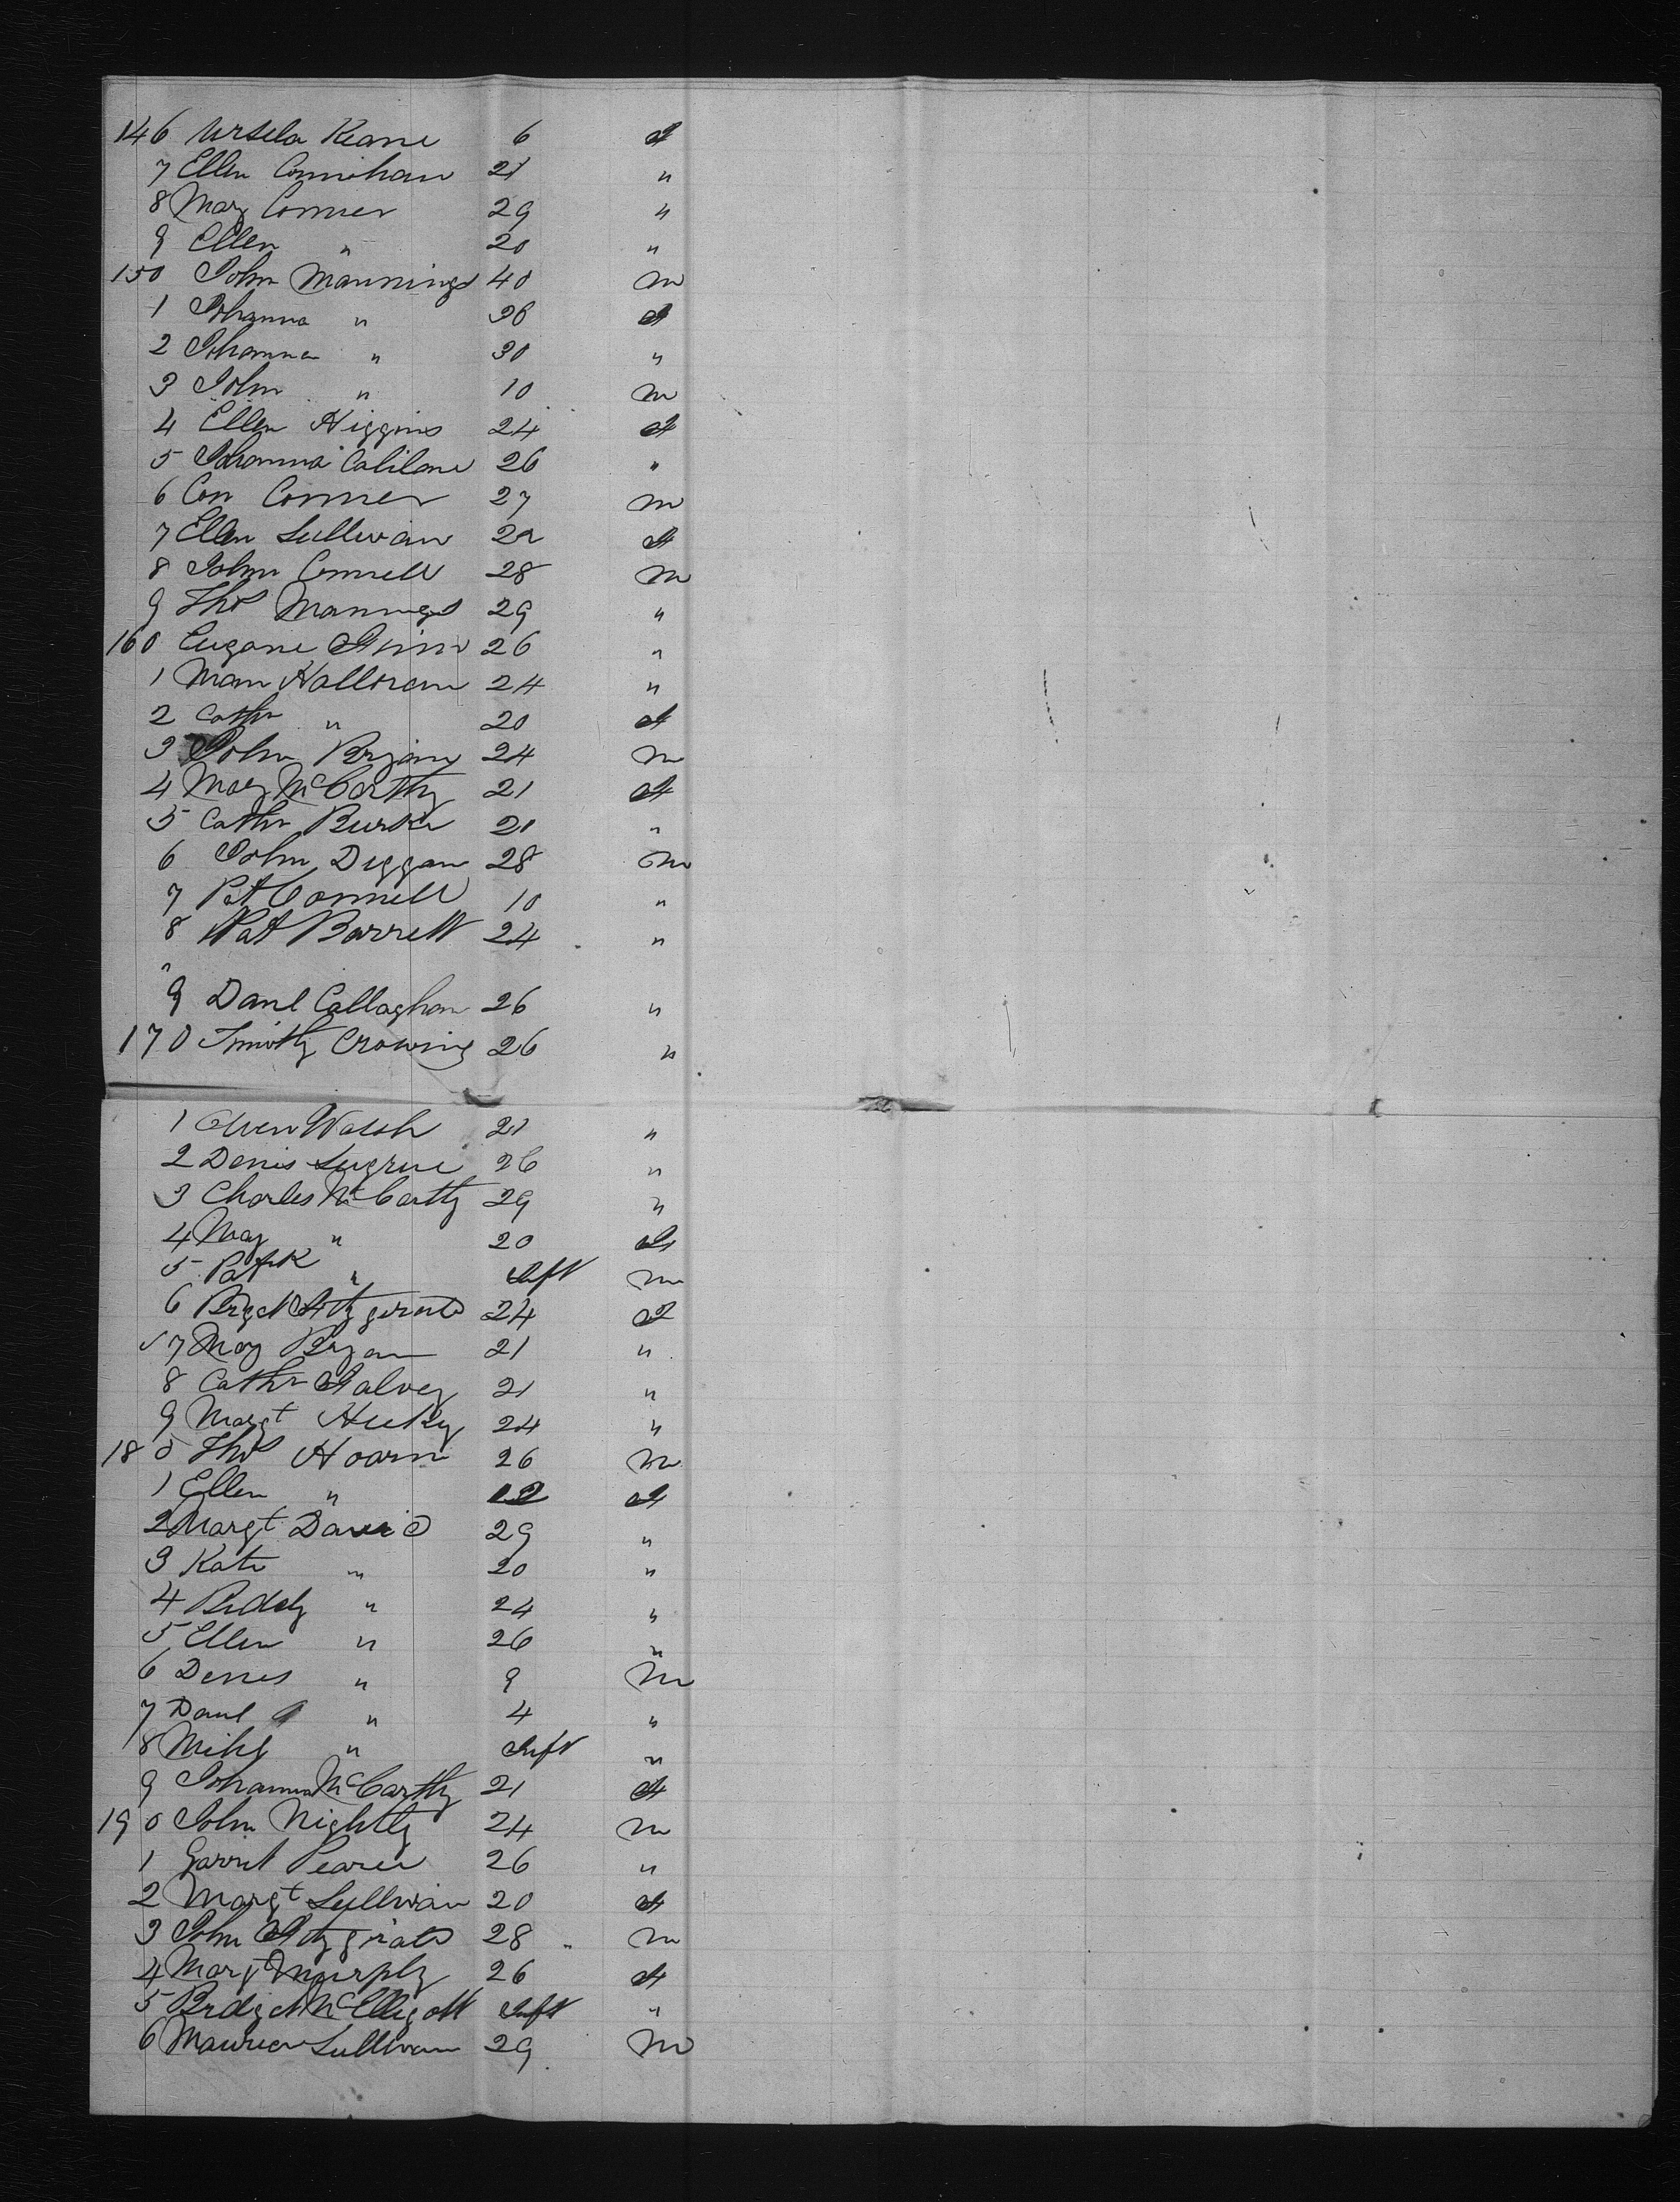 146 Ursela Keane 6 F
7 Ellen Connihan 21 "
8 Mary Conner 29 "
9 Ellen " 20 "
150 John Mannings 40 M
1 Johanna " 36 F
2 Johanna " 30 "
3 John " 10 M
4 Ellen Higgins 24 F
5 Johanna Calilane 26 "
6 Con Conner 27 M
7 Ellen Sullivan 22 F
8 John Connell 28 M
9 Thos Mannings 29 "
160 Eugane Finn 26 "
1 Mam Halloran 24 "
2 Cathr " 20 F
3 John Bryan 24 M
4 Mary McCarthy 21 F
5 Cathr Burke 20 "
6 John Diggan 28 M
7 Pat Connell 10 "
8 Pat Barrett 24 "
9 Danl Callaghan 26 "
170 Timothy Crowing 26 "
1 Owen Walsh 21 "
2 Denis Sugrue 26 "
3 Charles McCarthy 29 "
4 May " 20 F
5 Patk " Inft M
6 Brget Fitzgerald 24 F
7 May Bryan 21 "
8 Cathr Falvey 21 "
9 Margt Huky 24 "
180 Thos Hoarn 26 M
1 Ellen " F
2 Margt David 29 "
3 Kate " 20 "
4 Biddy " 24 "
5 Ellen " 26 "
6 Denes " 9 M
7 Danl " 4 "
8 Mihl " Inft "
9 Johanna McCarthy 21 F
190 John Nightly 24 M
1 Garret Pearce 26 "
2 Margt Sullivan 20 F
3 John Fitzgerald 28 M
4 Margt Murphy 26 F
5 Bridget McElligott Inft "
6 Maurice Sullivan 29 M